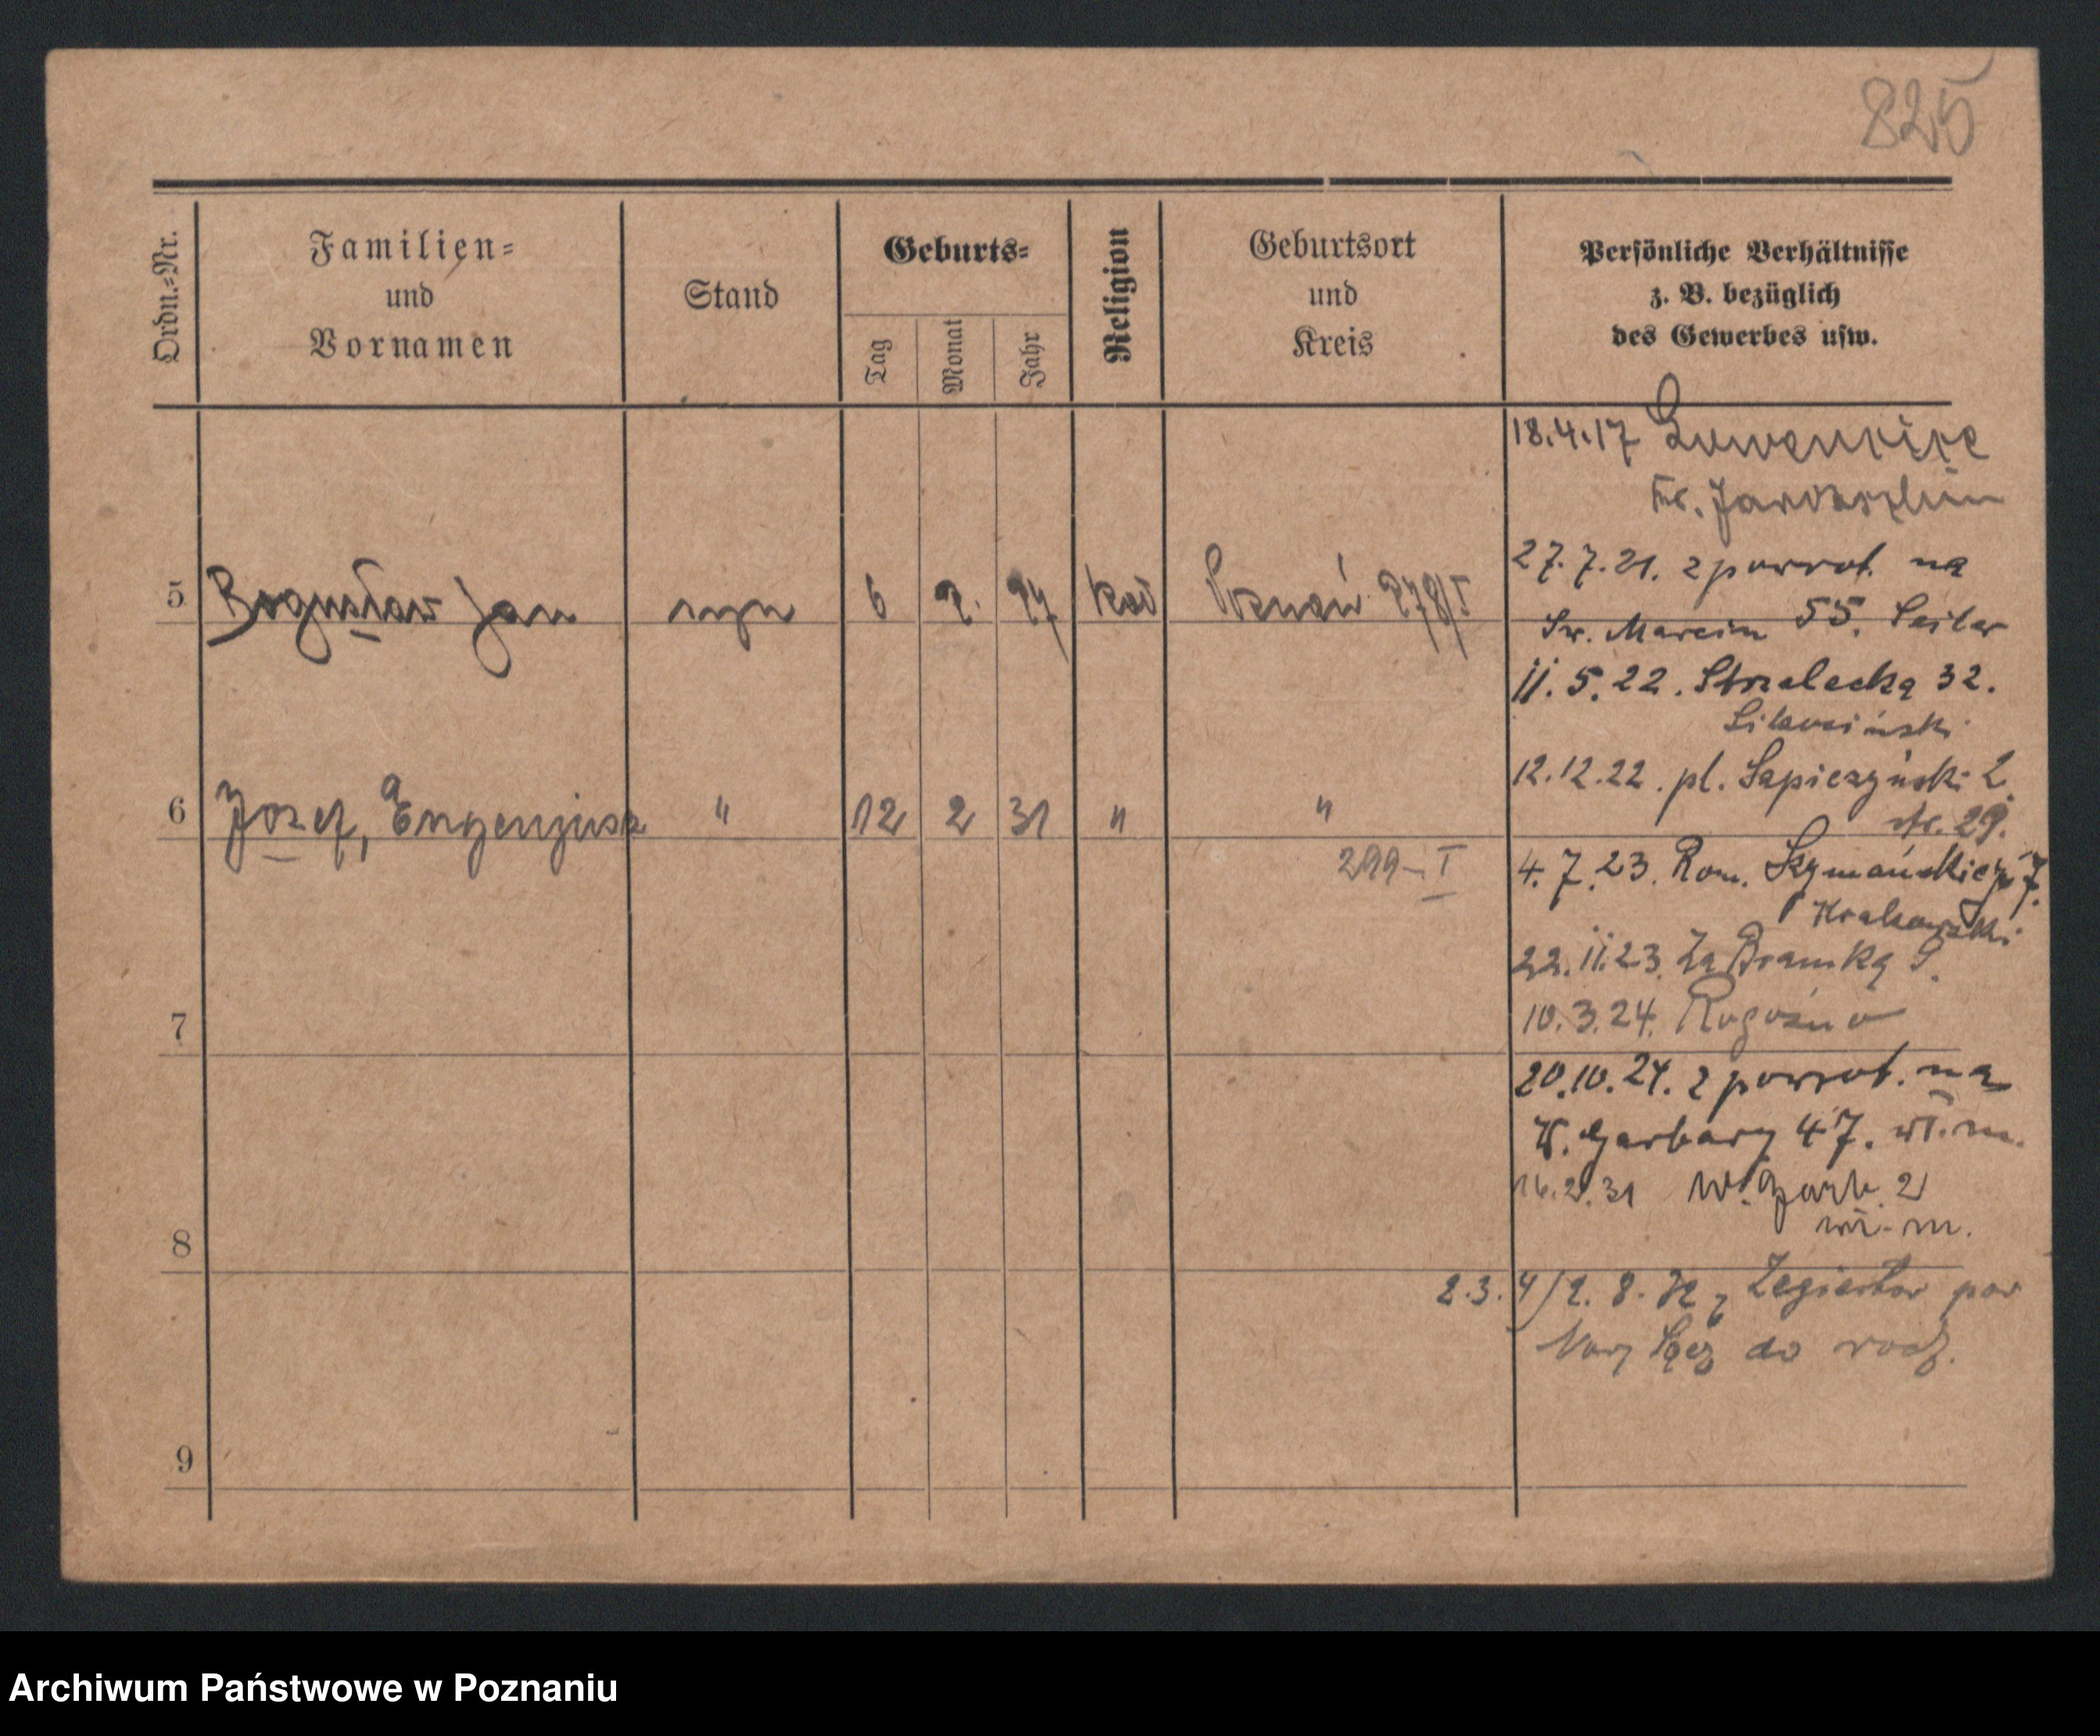 825
Ordn.=Nr.
Familien=
und
Vornamen
Stand
Geburts=
Tag
Monat
Jahr
Religion
Geburtsort
und
Kreis
Persönliche Verhältnisse
z. B. bezüglich
des Gewerbes usw.
18.4.17
27.7.21. z powrot. na
5 Bogusław Jan syn 6 2. 27 kat Poznań 278/I
Św. Marcin 55.
11.5.22. Strzelecka 32.
12.12.22. pl. Sapieżyński 2
6 Józef, Eugenjusz " 12 2 31 " "
29.
299-I
4.7.23. Rom. Szymańskiego 7.
Krakowski
22.11.23. Za Bramką
7
10.3.24. Rogoźno
20.10.24. z powrot. na
W. Garbary 47. wł. m.
16.2.31 W. Garb. 2
wł. m.
8
2.3.4/2. 8. 32 z Żegiestów pow
Nowy Sącz do rodz.
9
Archiwum Państwowe w Poznaniu